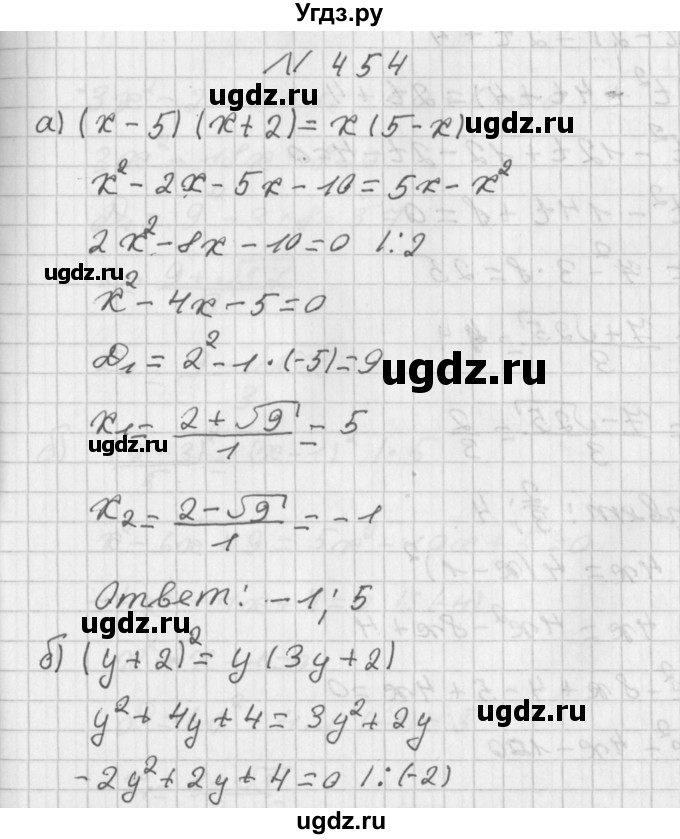 Угдз.ру
N 454
ugdz.ru
а) (x - 5) (x + 2) = x (5 - x) ugdz.ru
x² - 2x - 5x - 10 = 5x - x²
2x² - 8x - 10 = 0 |:2
ugdz.ru
x² - 4x - 5 = 0
D₁ = 2² - 1 · (-5) = 9
ugdz.ru
x₁ = (2 + √9)/1 = 5
ugdz.ru
x₂ = (2 - √9)/1 = -1
ugdz.ru
Ответ: -1; 5
ugdz.ru
б) (y + 2)² = y (3y + 2)
y² + 4y + 4 = 3y² + 2y
ugdz.ru
-2y² + 2y + 4 = 0 |:(-2)
ugdz.ru
ugdz.ru